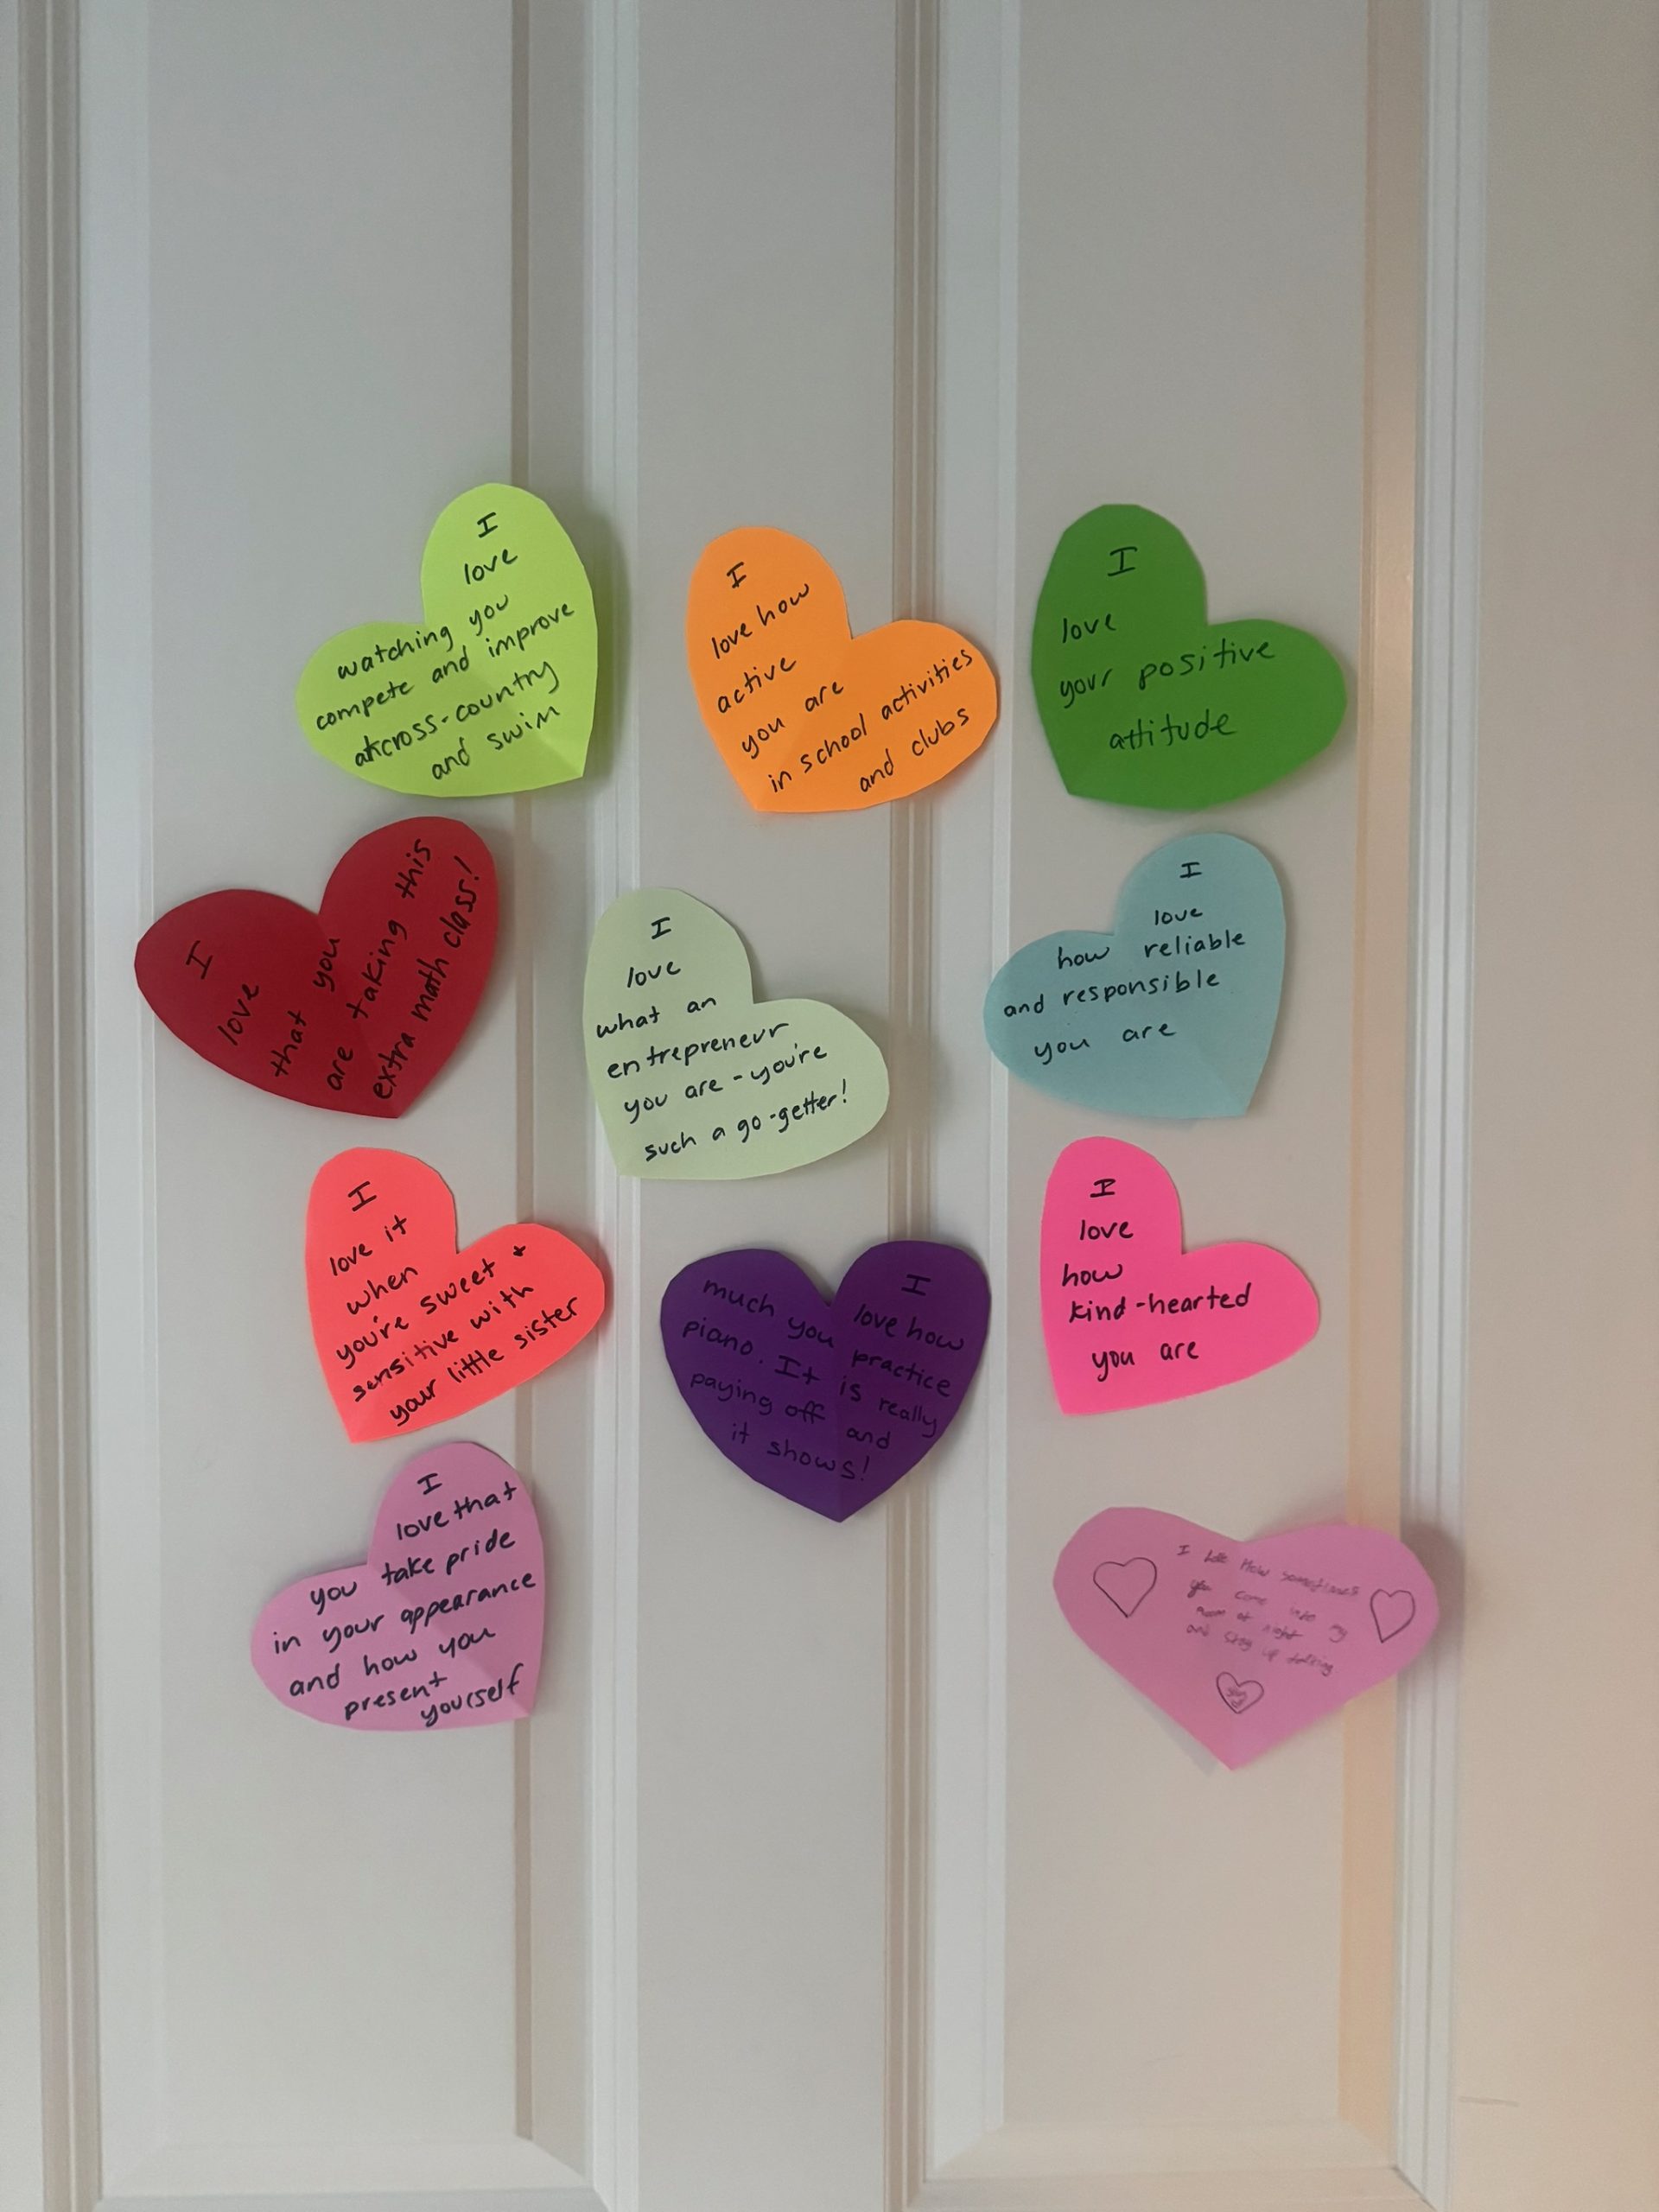 I
love
watching you
compete and improve
at cross-country
and swim
I
love how
active
you are
in school activities
and clubs
I
love
your positive
attitude
I
love
that you
are taking this
extra math class!
I
love
what an
entrepreneur
you are - you're
such a go-getter!
I
love
how reliable
and responsible
you are
I
love it
when
you're sweet +
sensitive with
your little sister
I
love how
much you practice
piano. It is really
paying off and
it shows!
I
love
how
kind-hearted
you are
I
love that
you take pride
in your appearance
and how you
present
yourself
I How sometimes
you come into my
room at night
and stay up talking